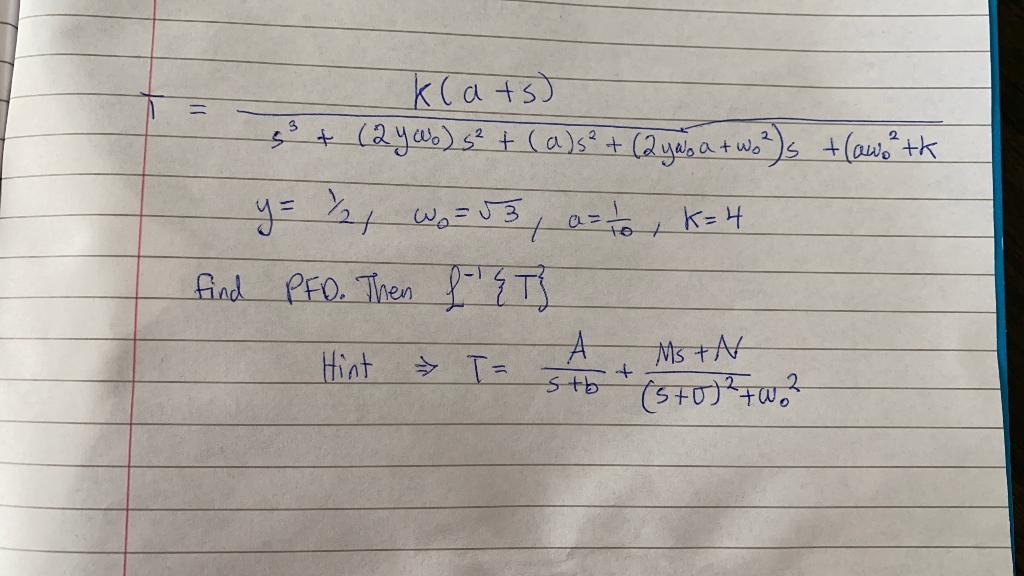 T = k(a+s) / s³ + (2yω₀)s² + (a)s² + (2yω₀a+ω₀²)s + (aω₀²+k
y = 1/2, ω₀=√3, a=1/10, k=4
find PFD. Then ℒ⁻¹{T}
Hint ⇒ T = A/s+b + Ms+N/(s+σ)²+ω₀²